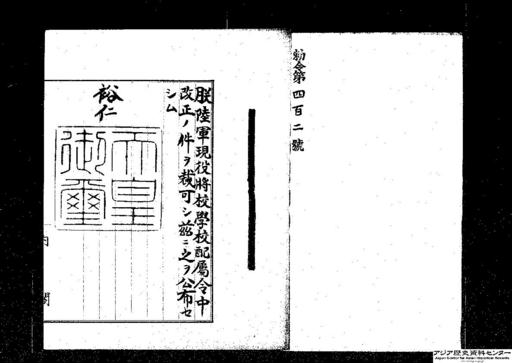 勅令第四百二號
朕陸軍現役將校學校配屬令中
改正ノ件ヲ裁可シ茲ニ之ヲ公布セ
シム
裕仁
天皇
御璽
内閣
アジア歴史資料センター
Japan Center for Asian Historical Records